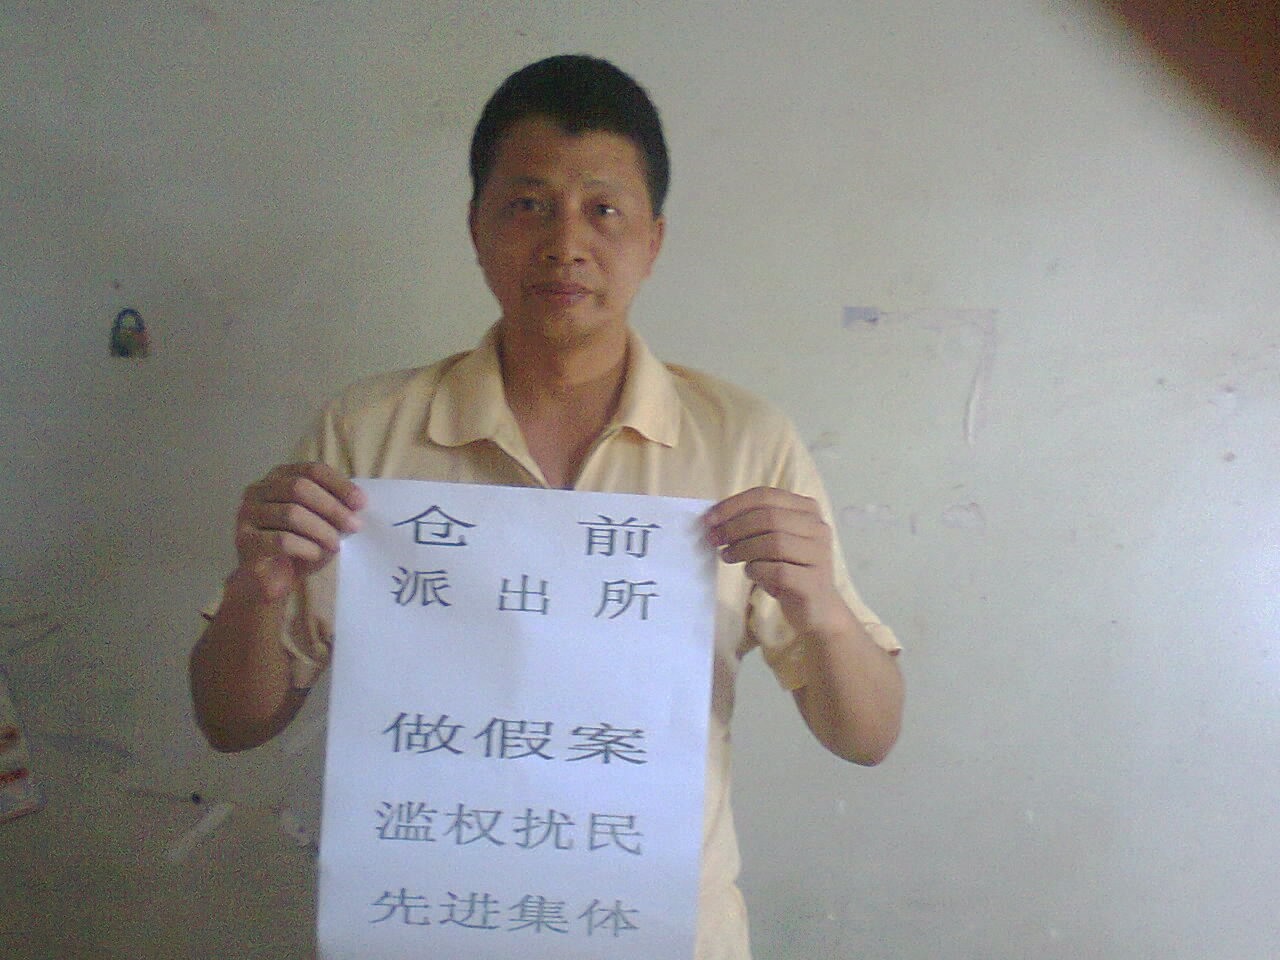 仓 前
派 出 所
做假案
滥权扰民
先进集体